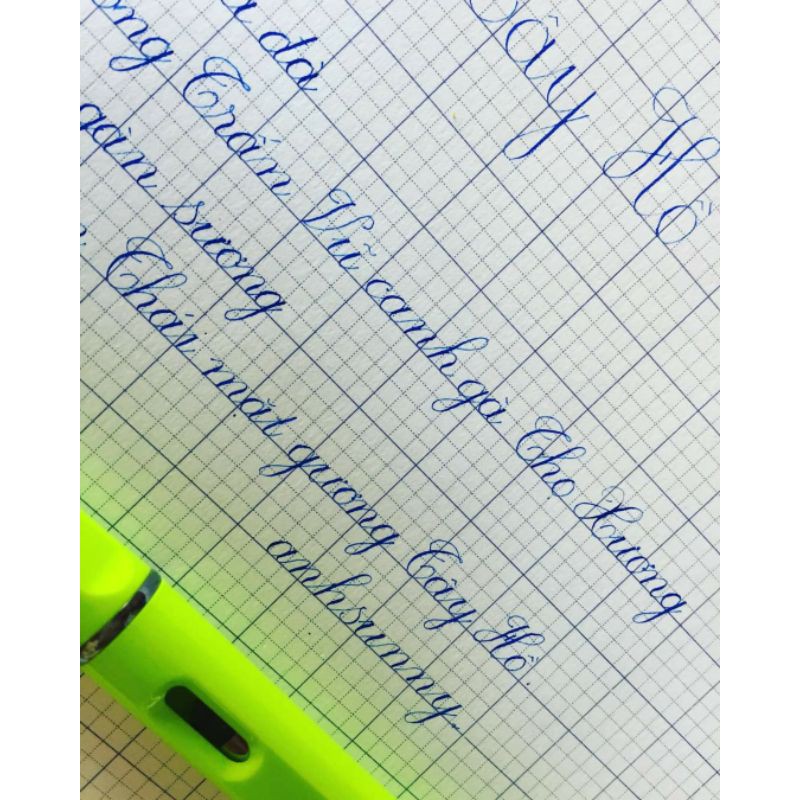 Tây Hồ
đà
Trấn Vũ canh gà Thọ Xương
ngàn sương
Thái mặt gương Tây Hồ.
anhsunny.